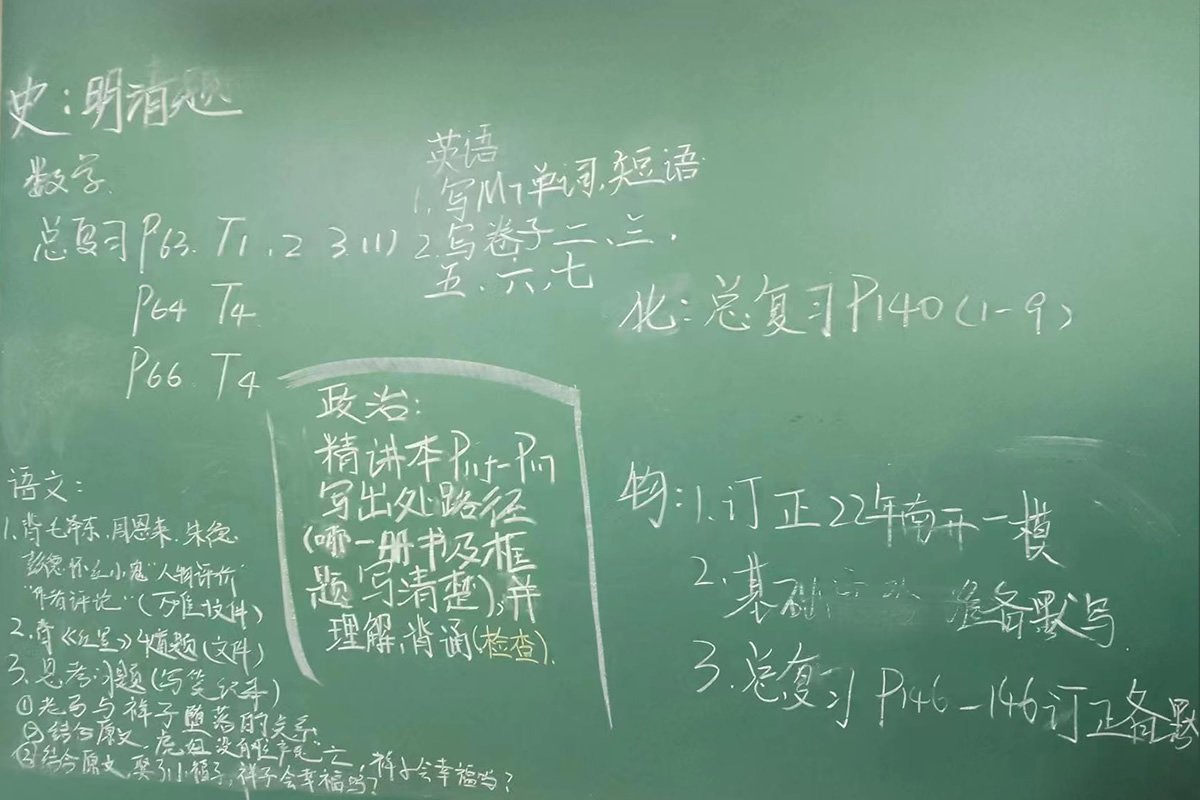 史：明清题
数学
总复习 P63. T1, 2 3.(1)
P64 T4
P66 T4
英语
1.写M7单词,短语
2.写卷子二、三、
五、六、七
化：总复习P140(1-9)
政治：
精讲本P115-P117
写出处路径
(哪一册书及框
题写清楚),并
理解,背诵(检查).
语文：
1.背毛泽东,周恩来.朱德.
彭德怀红小鬼"人物评价"
"作者评论"(文件)
2.背《红星》4道题(文件)
3.思考问题(写笔记本)
①老马与祥子堕落的关系
②结合原文,虎妞没有难产死亡,祥子会幸福吗?
③结合原文,娶了小福子,祥子会幸福吗?
物：1.订正22年南开一模
2.基础 准备默写.
3.总复习 P146-146订正备默